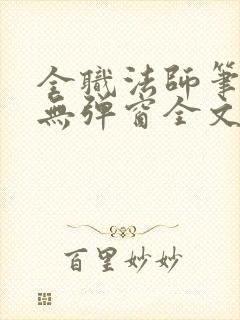 全職法師筆
無彈窗全文
百里妙妙